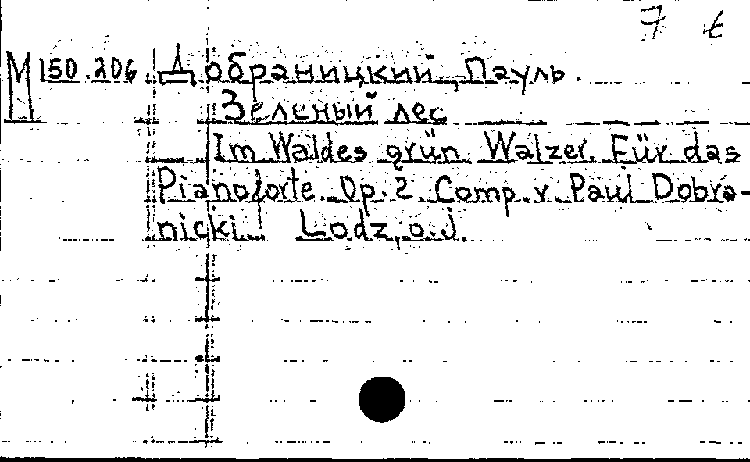 7 t
M 150.206 Добраницкий, Пауль.
Зеленый лес
Im Waldes grün. Walzer. Für das
Pianoforte. Op. 2. Comp. v. Paul Dobra-
nicki. Lodz, o. J.